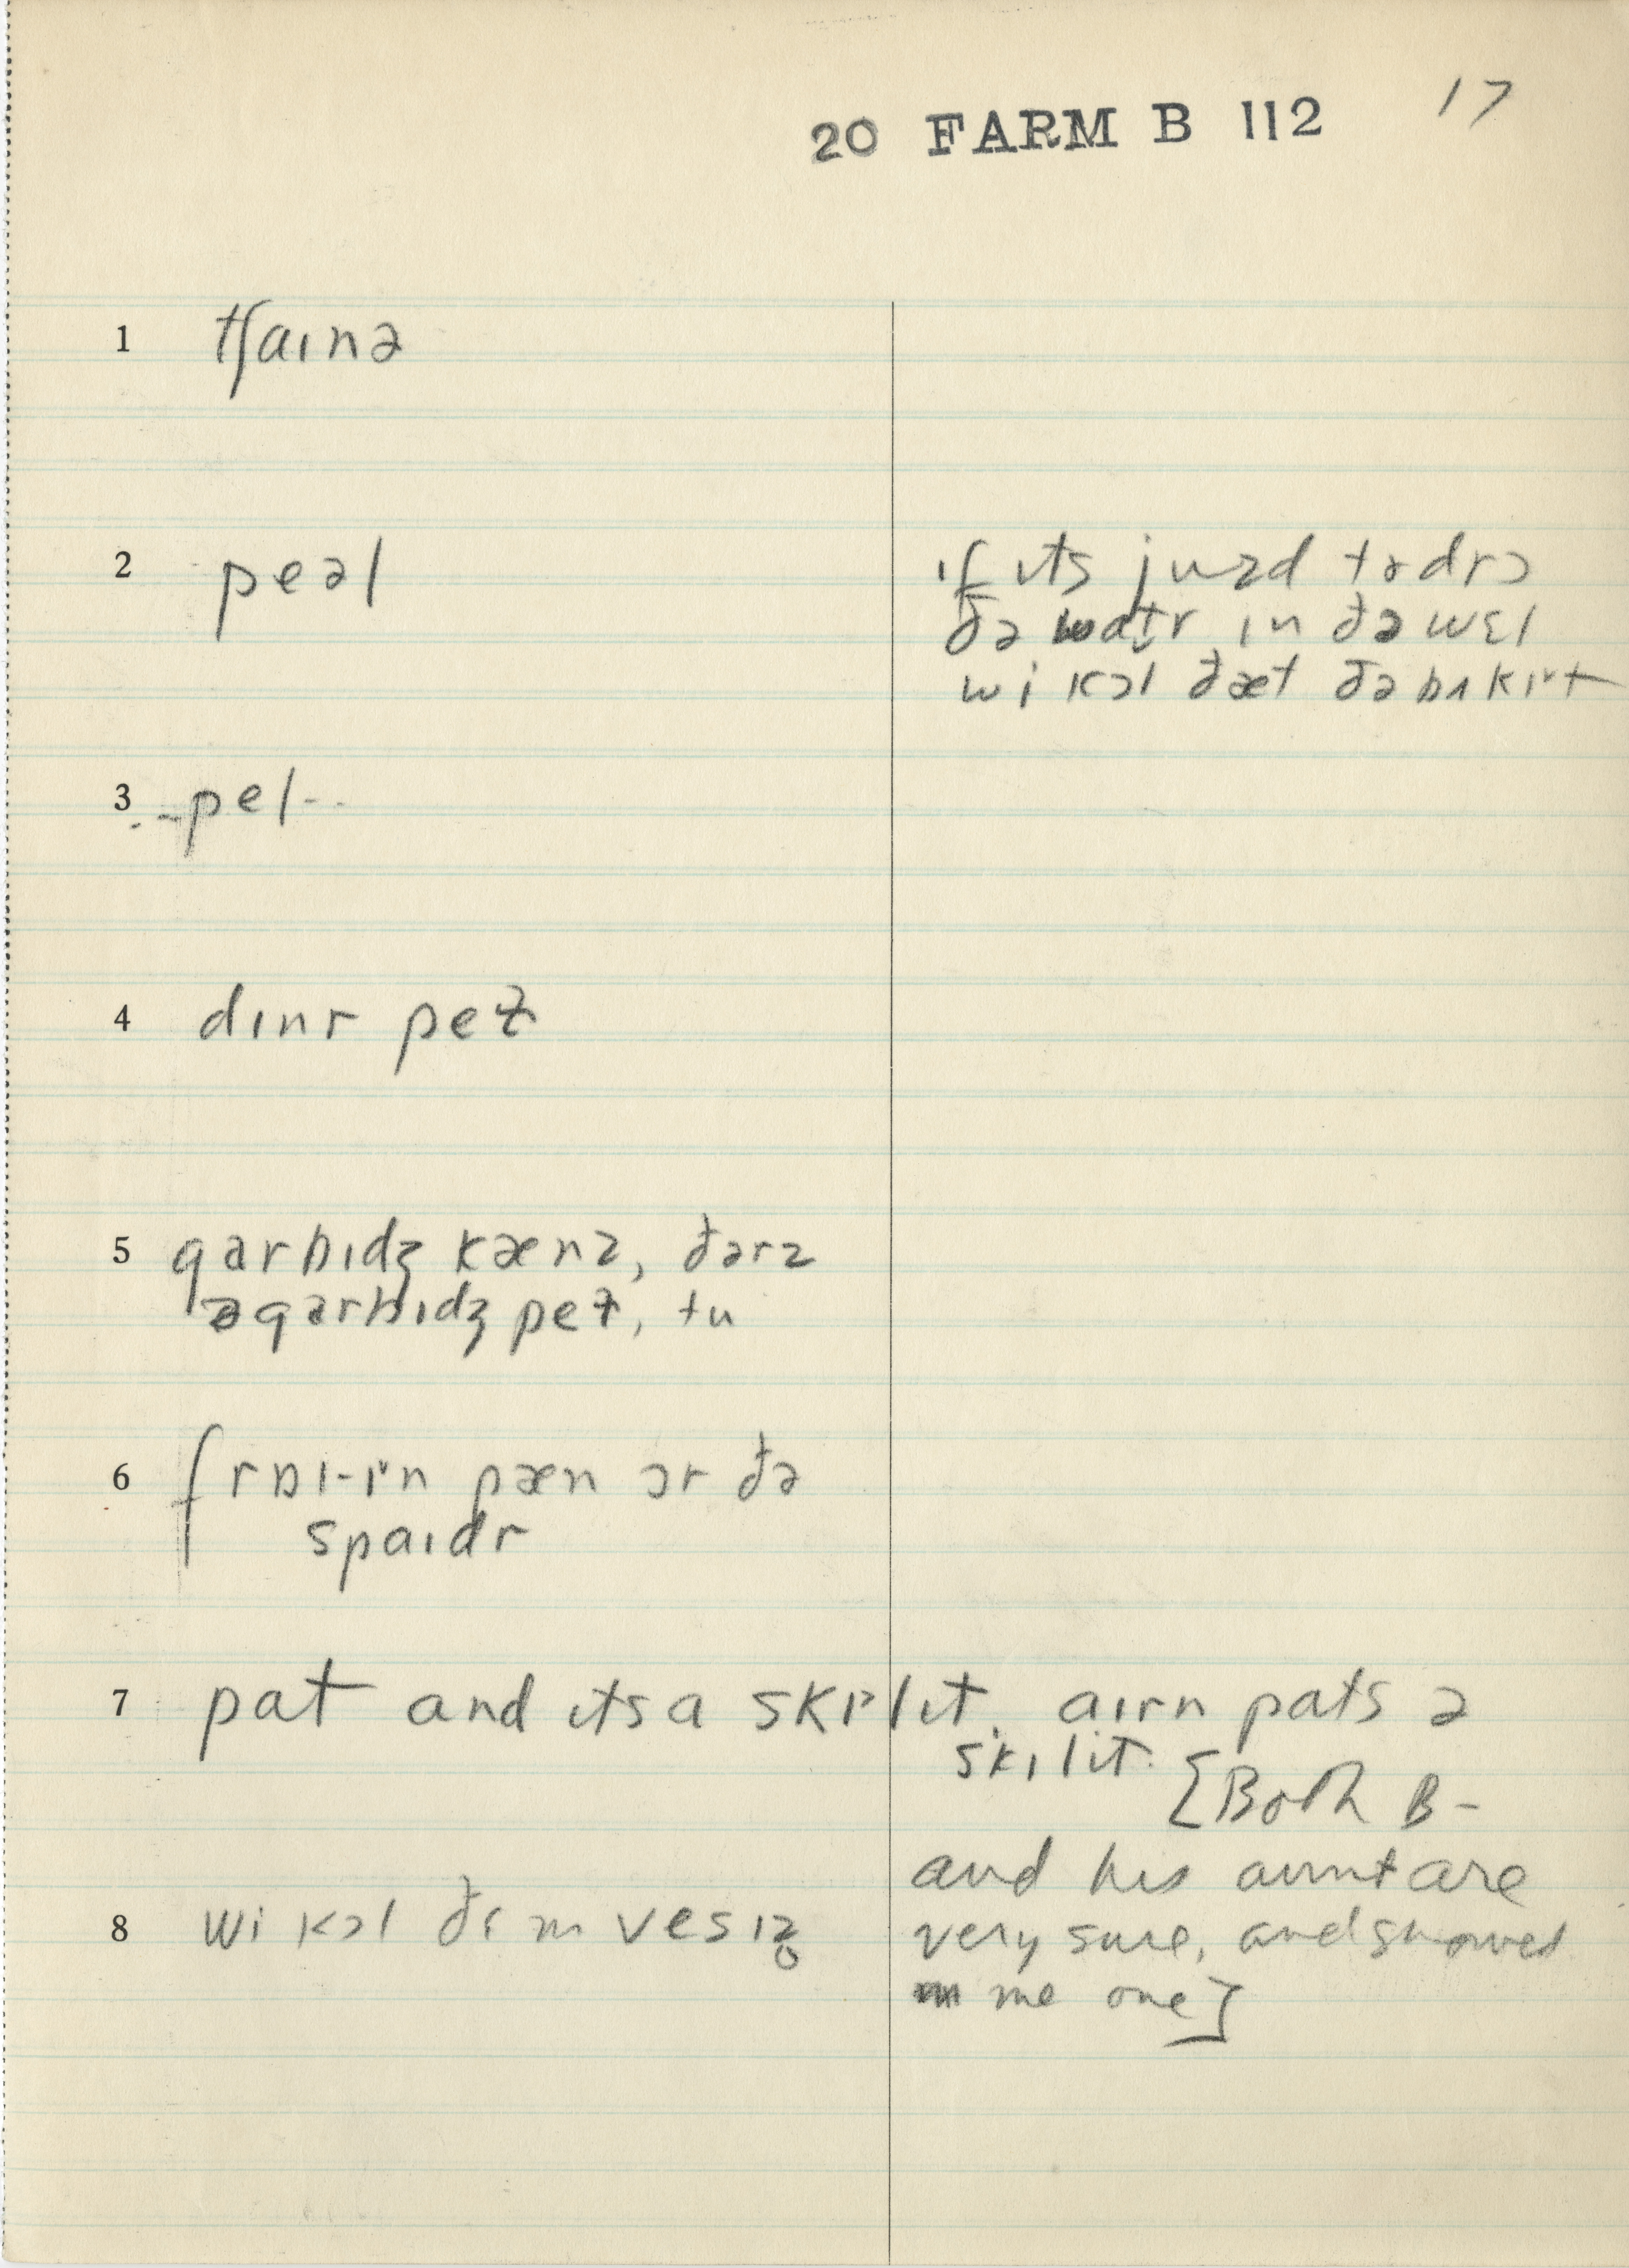 20 FARM B 112 17
1 tʃaɪnə
2 peəl
ɪf ɪts juzd tədrɔ
ðə watr ɪn ðə wɛl
wi kɔl ðæt ðə bʌkɪt
3 --pel--
4 dɪnr peɫ
5 garbɪdʒ kænz, ðərz
ə garbɪdʒ peɫ, tu
6 fraɪ-ɪn pæn ɔr ðə
spaɪdr
7 pat and ɪts a skɪlɪt. aɪrn pats ə
skɪlɪt. [Both B-
and his aunt are
very sure, and showed
me one]
8 wi kɔl ðɛm vesɪz̥